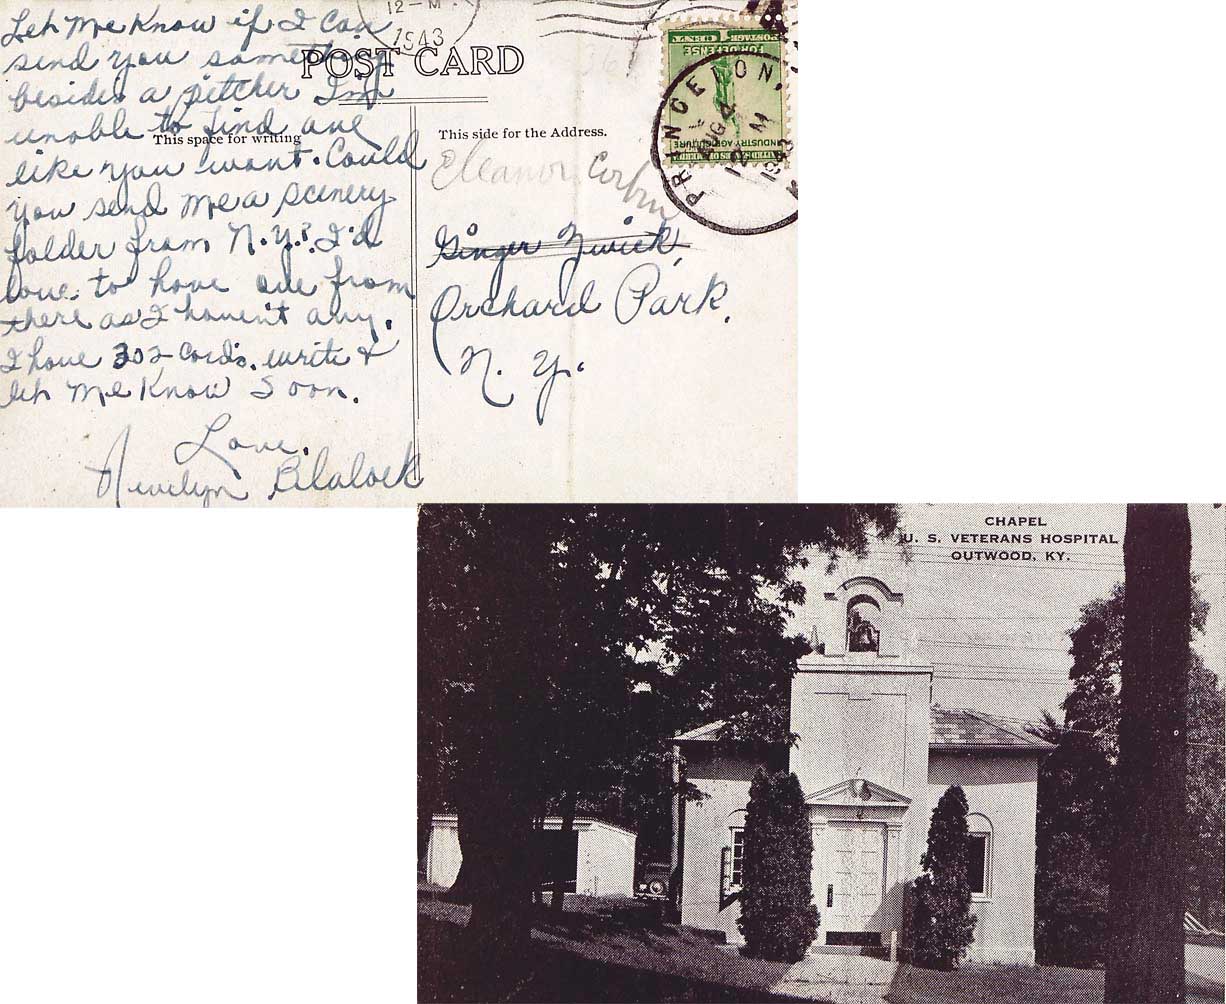 Leh me Know if I Can
send you something
besides a pitcher I'm
unable to find one
like you want. Could
you send me a scenery
folder from N.Y.? I'd
love to have one from
there as I haven't any.
I have 302 Cards. write &
leh me Know Soon.
Love,
Blalock
12-M.
1943
POST CARD
This space for writing
This side for the Address.
Eleanor Corbin
Ginger Zwick,
Orchard Park,
N. Y.
UNITED STATES OF AMERICA
INDUSTRY AGRICULTURE
FOR DEFENSE
1 CENT 1
POSTAGE
PRINCETON,
AUG 4
12 M
1943
CHAPEL
U. S. VETERANS HOSPITAL
OUTWOOD, KY.